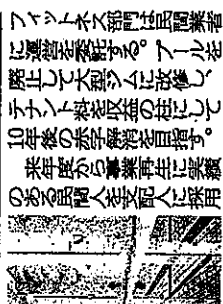 フィットネス部門は民間業者
に運営を委託する。プールを
廃止して大型ジムに改修し、
テナント料を収益の柱にして
10年後の赤字解消を目指す。
来年度から事業再生に実績
のある民間人を支配人に採用